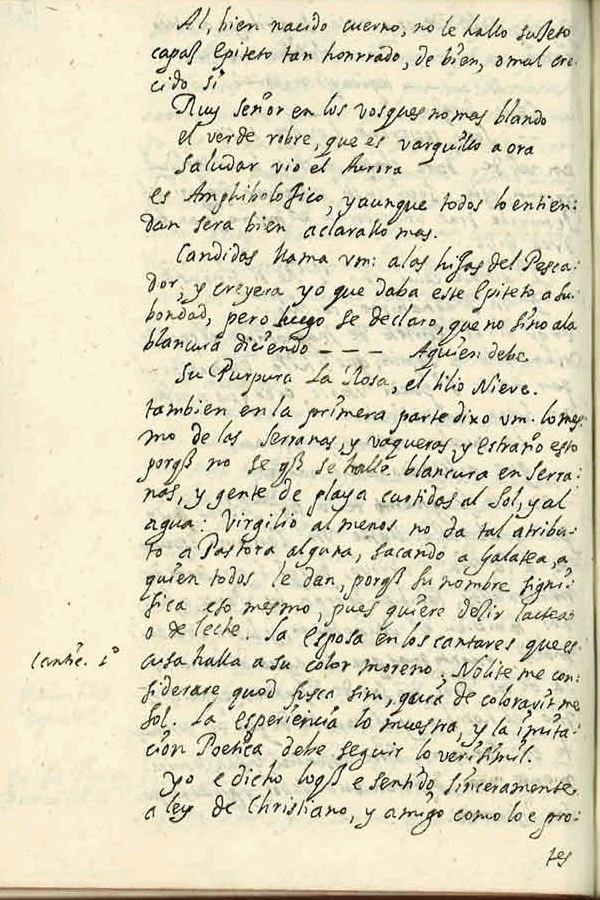 Al, bien nacido cuerno, no le hallo sujeto
capaß Epiteto tan honrrado, de bien, o mal cre-
cido si
Muy señor en los vosques no mas blando
el verde robre, que es varquillo aora
Saludar vio el Aurora
es Amphibolojico, y aunque todos lo entien:
dan sera bien aclarallo mas.
Candidas llama vm: a las hijas del Pesca:
dor, y creyera yo que daba este Epiteto a su
bondad, pero luego se declaro, que no sino a la
blancura diciendo — — — Aquien debe
Su Purpura La Rosa, el lilio Nieve.
tambien en la primera parte dixo vm. lo mes
mo de las Serranas, y vaqueras, y estraño esto
porqß no se qß se halle blancura en Serra:
nas, y gente de playa curtidas al Sol, y al
agua: Virgilio al menos no da tal atribu-
to a Pastora alguna, sacando a Galatea, a
quien todos le dan, porqß su nombre signi:
fica eso mesmo, pues quiere deçir lactea
o de leche. La esposa en los cantares que es
cusa halla a su color moreno. Nolite me con:
siderare quod fusca sim, quia decoloravit me
Sol. La esperiencia lo muestra, y la imita:
cion Poetica debe seguir lo verisimil.
yo e dicho loqß e sentido sinceramente
a ley de Christiano, y amigo como lo e pro:
tes